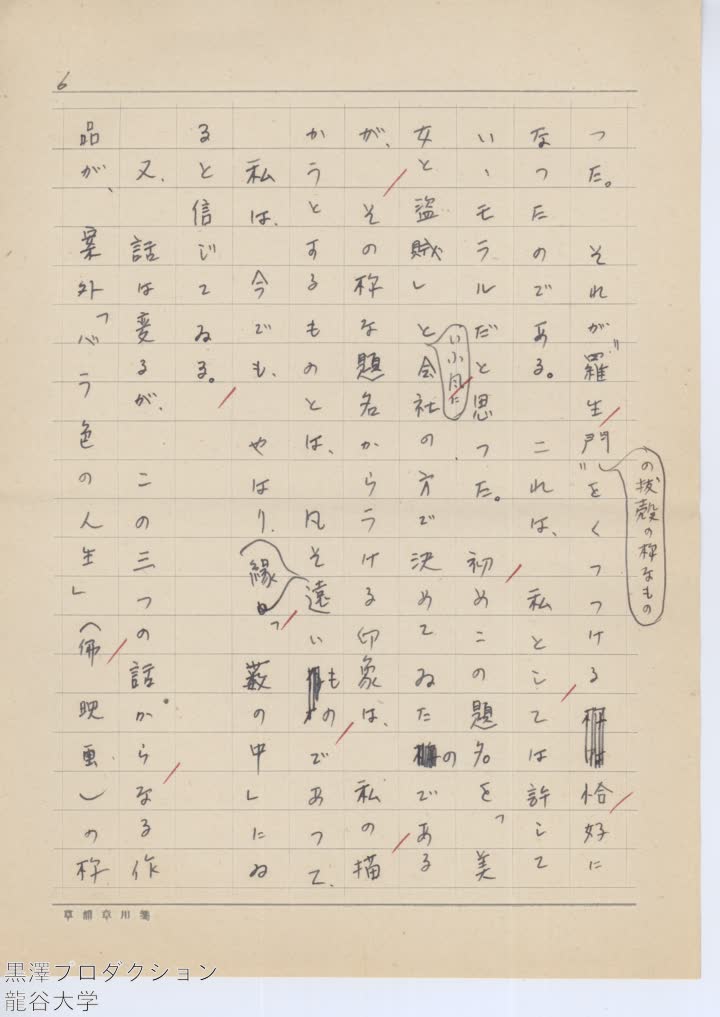 6
つた。それが"羅生門"をくつつける恰好に
の抜殻の样なもの
なつたのである。これは、私としては許して
いゝモラルだと思つた。初めこの題名を「美
女と盗賊」と会社の方で決めてゐたのである
が、その样な題名からうける印象は、私の描
かうとするものとは、凡そ遠いものであつて、
私は、今でも、やはり、縁は「藪の中」にゐ
ると信じてゐる。
又、話は変るが、この三つの話からなる作
品が、案外「バラ色の人生」(佛映画)の样
黒澤プロダクション
龍谷大学